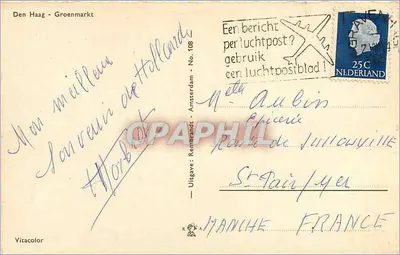 Den Haag - Groenmarkt
Een bericht
per luchtpost?
gebruik
een luchtpostblad!
25C
NEDERLAND
Mon meilleur
Souvenir de Hollande
Uitgave: Rembrandt - Amsterdam - No. 108
CPAPHIL
Aubin
Epicerie
St Pair s/Mer
MANCHE FRANCE
Vitacolor